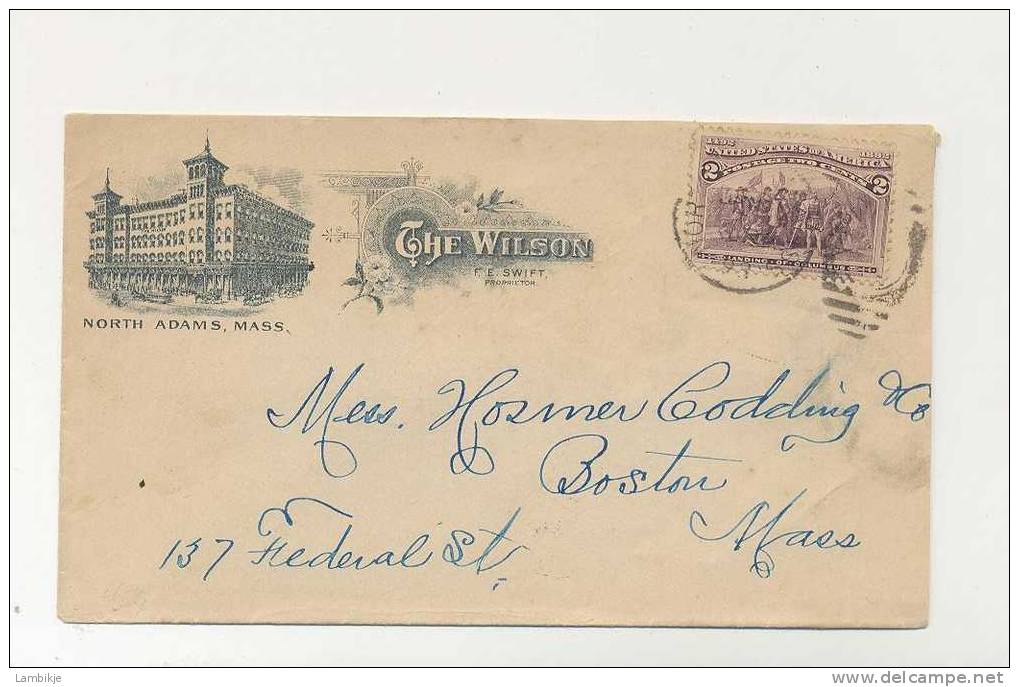 NORTH ADAMS, MASS.
THE WILSON
F. E. SWIFT.
PROPRIETOR
1492 1892
UNITED STATES OF AMERICA
POSTAGE TWO CENTS
2 2
LANDING OF COLUMBUS
Mess. Hosmer Codding & Co
Boston
Mass
137 Federal St.
Lambikje
www.delcampe.net